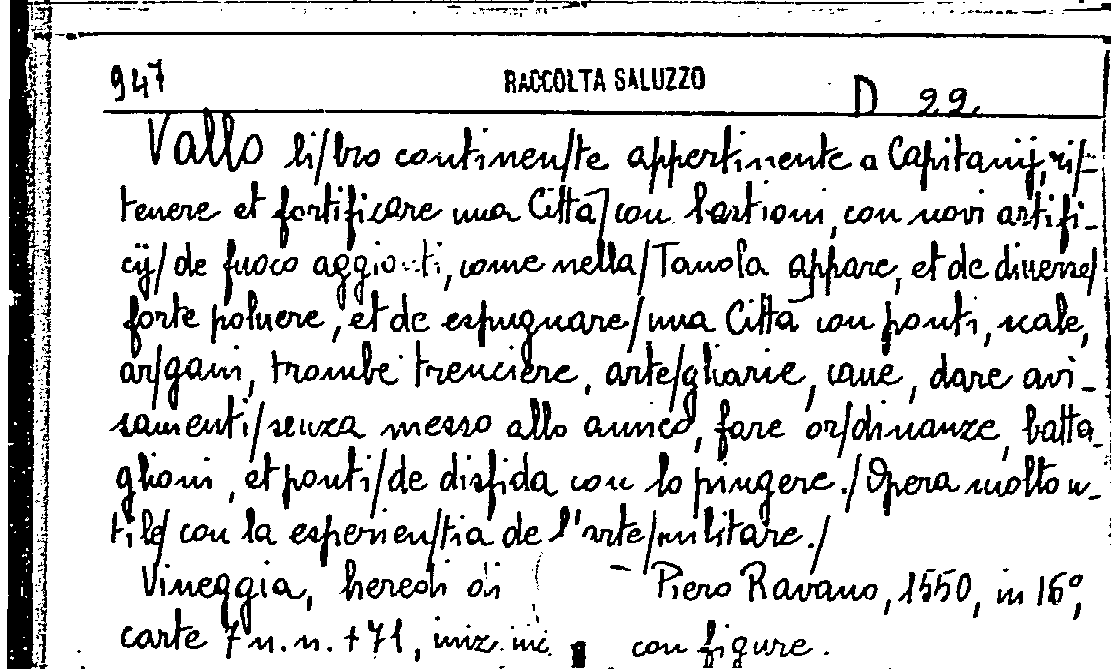 947 RACCOLTA SALUZZO D 22
Vallo li/bro continen/te appertinente a Capitanij, ri/-
tenere et fortificare una Città/con bastioni, con novi artifi-
cÿ/de fuoco aggionti, come nella/Tauola appare, et de diuerse/
forte poluere, et de espugnare/una Città con ponti, scale,
ar/gani, trombe trenciere, arte/gliarie, caue, dare avi-
samenti/senza messo allo amico, fare or/dinanze, batta-
glioni, et ponti/de disfida con lo pingere./Opera molto u-
tile/con la esperien/tia de l'arte/militare./
Vineggia, heredi di Piero Ravano, 1550, in 16°,
carte 7 n.n. + 71, iniz. inc. con figure.